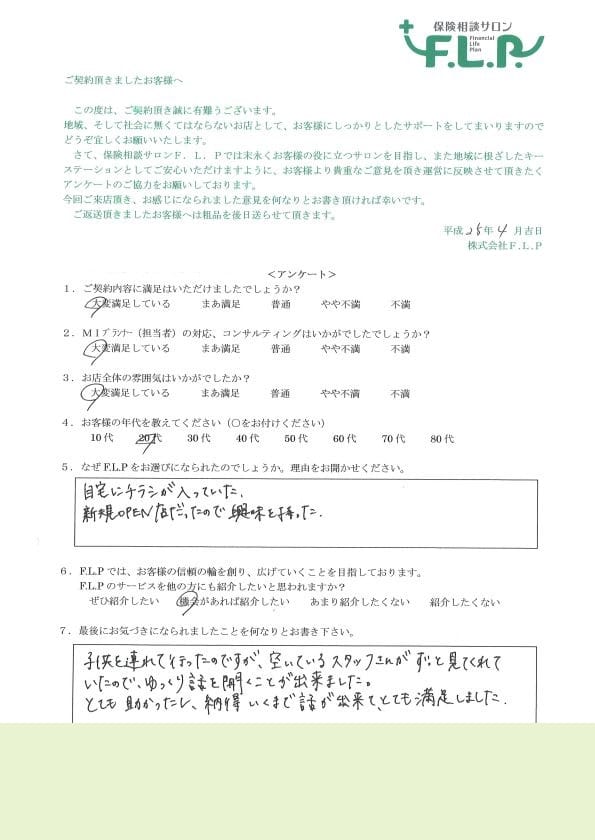 保険相談サロン
F.L.P.
Financial
Life
Plan
ご契約頂きましたお客様へ
この度は、ご契約頂き誠に有難うございます。
地域、そして社会に無くてはならないお店として、お客様にしっかりとしたサポートをしてまいりますので
どうぞ宜しくお願いいたします。
さて、保険相談サロンF．L．Pでは末永くお客様の役に立つサロンを目指し、また地域に根ざしたキー
ステーションとしてご安心いただけますように、お客様より貴重なご意見を頂き運営に反映させて頂きたく
アンケートのご協力をお願いしております。
今回ご来店頂き、お感じになられました意見を何なりとお書き頂ければ幸いです。
ご返送頂きましたお客様へは粗品を後日送らせて頂きます。
平成25年4月吉日
株式会社F.L.P
＜アンケート＞
1．ご契約内容に満足はいただけましたでしょうか？
大変満足している　まあ満足　普通　やや不満　不満
2．MIプランナー（担当者）の対応、コンサルティングはいかがでしたでしょうか？
大変満足している　まあ満足　普通　やや不満　不満
3．お店全体の雰囲気はいかがでしたか？
大変満足している　まあ満足　普通　やや不満　不満
4．お客様の年代を教えてください（○をお付けください）
10代　20代　30代　40代　50代　60代　70代　80代
5．なぜF.L.Pをお選びになられたのでしょうか。理由をお聞かせください。
自宅にチラシが入っていた。
新規OPEN店だったので興味を持った．
6．F.L.Pでは、お客様の信頼の輪を創り、広げていくことを目指しております。
F.L.Pのサービスを他の方にも紹介したいと思われますか？
ぜひ紹介したい　機会があれば紹介したい　あまり紹介したくない　紹介したくない
7．最後にお気づきになられましたことを何なりとお書き下さい。
子供を連れて行ったのですが、空いているスタッフさんがずっと見てくれて
いたので、ゆっくり話を聞くことが出来ました。
とても助かったし、納得いくまで話が出来て、とても満足しました．